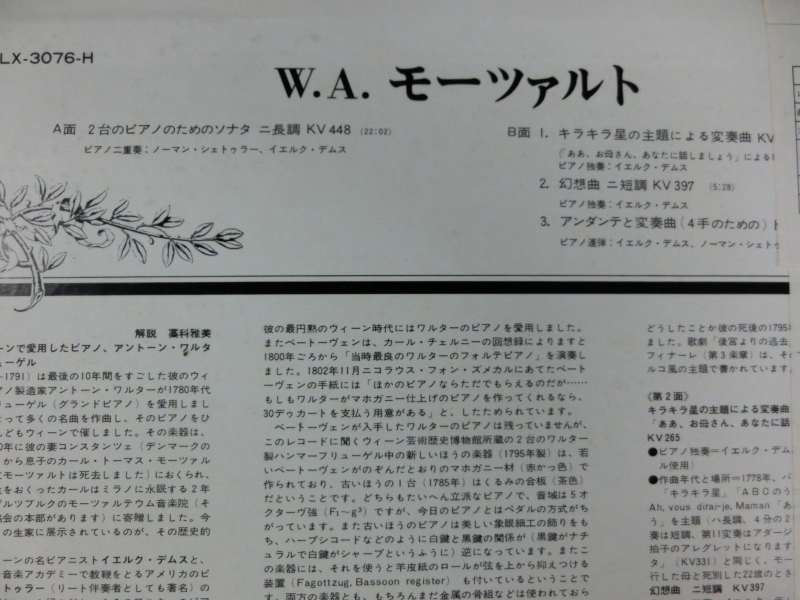 LX-3076-H
W.A. モーツァルト
A面 2台のピアノのためのソナタ ニ長調 KV 448 (22:02)
ピアノ二重奏：ノーマン・シェトゥラー、イエルク・デムス
B面 1. キラキラ星の主題による変奏曲 KV
(「ああ、お母さん、あなたに話しましょう」による
ピアノ独奏：イエルク・デムス
2. 幻想曲 ニ短調 KV 397 (5:28)
ピアノ独奏：イエルク・デムス
3. アンダンテと変奏曲(4手のための)
ピアノ連弾：イエルク・デムス、ノーマン・シェトゥ
解説 藁科雅美
ーンで愛用したピアノ、アントーン・ワルタ
ューゲル
-1791)は最後の10年間をすごした彼のウィ
アノ製造家アントーン・ワルターが1780年代
リューゲル(グランドピアノ)を愛用しまし
よって多くの名曲を作曲し、そのピアノをひ
んどもウィーンで催しました。その楽器は、
0年に彼の妻コンスタンツェ(デンマークの
から息子のカール・トーマス・モーツァル
モーツァルトは死去しました)におくられ、
をおくったカールはミラノに永眠する2年
ルツブルクのモーツァルテウム音楽院(そ
協会の本部があります)に寄贈しました。今
の生家に展示されているのが、その歴史的
ーンの名ピアニストイエルク・デムスと、
音楽アカデミーで教鞭をとるアメリカのピ
トゥラー(リート伴奏者としても著名)の
彼の最円熟のウィーン時代にはワルターのピアノを愛用しました。
またベートーヴェンは、カール・チェルニーの回想録によりますと
1800年ごろから「当時最良のワルターのフォルテピアノ」を演奏し
ました。1802年11月ニコラウス・フォン・ズメカルにあてたベート
ーヴェンの手紙には「ほかのピアノならただでもらえるのだが……
もしもワルターがマホガニー仕上げのピアノを作ってくれるなら、
30デッカートを支払う用意がある」と、したためられています。
ベートーヴェンが入手したワルターのピアノは残っていませんが、
このレコードに聞くウィーン芸術歴史博物館所蔵の2台のワルター
製ハンマーフリューゲル中の新しいほうの楽器(1795年製)は、若
いベートーヴェンがのぞんだとおりのマホガニー材(赤かっ色)で
作られており、古いほうの1台(1785年)はくるみの合板(茶色)
だということです。どちらもたいへん立派なピアノで、音域は5オ
クターヴ強(F₁〜g³)ですが、今日のピアノとはペダルの方式がち
がっています。また古いほうのピアノは美しい象眼細工の飾りをも
ち、ハープシコードなどのように白鍵と黒鍵の関係が(黒鍵がナチ
ュラルで白鍵がシャープというふうに)逆になっています。またこ
の楽器には、それを使うと羊皮紙のロールが弦を上から抑えつける
装置(Fagottzug, Bassoon register)も付いているということで
す。両方の楽器とも、もちろんまだ金属の骨組などは使われておら
どうしたことか彼の死後の1795
ました。歌劇「後宮よりの逃去
フィナーレ(第3楽章)は、そ
ルコ風の主題で書かれています。
《第2面》
キラキラ星の主題による変奏曲
「ああ、お母さん、あなたに話
KV 265
●ピアノ独奏＝イエルク・デム
ル使用)
●作曲年代と場所＝1778年、パ
「キラキラ星」「ABCのう
Ah, vous dirai-je, Maman「あ
う」を主題(ハ長調、4分の2
奏は短調、第11変奏はアダージ
拍子のアレグレットになります
(KV331)と同じく、モー
行した母と死別した22歳のとき
幻想曲 ニ短調 KV 397